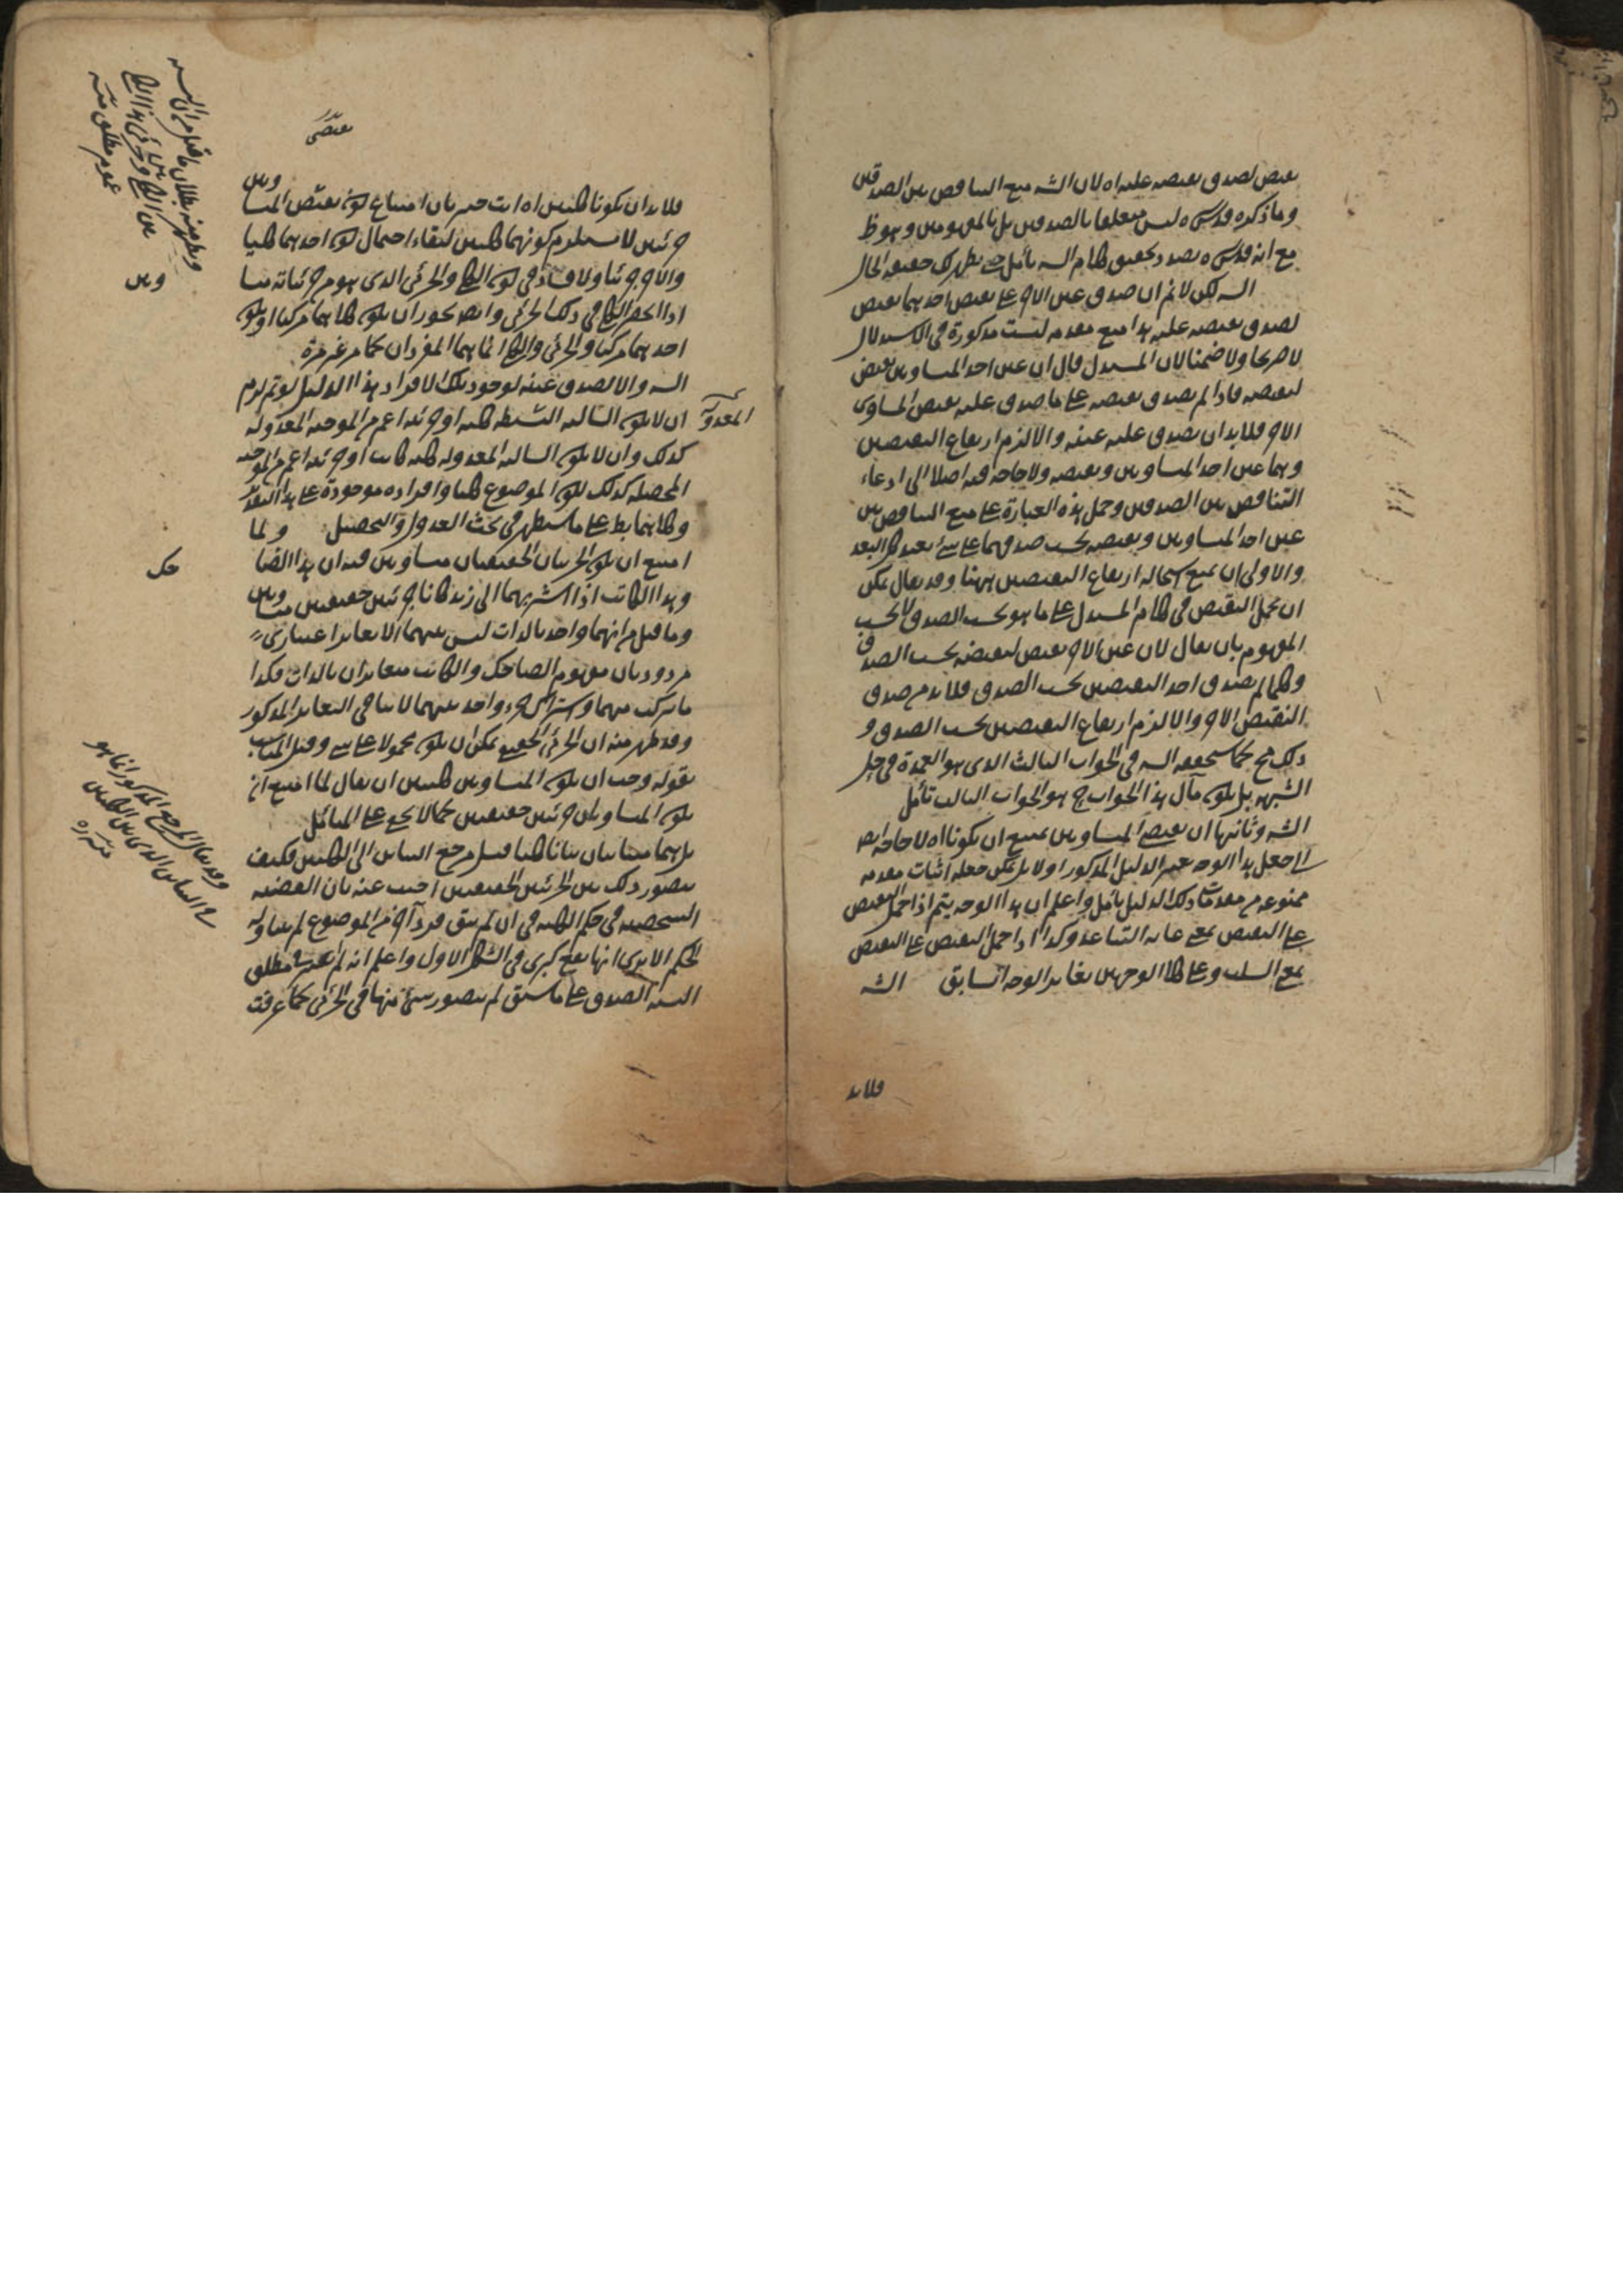 نقيض لصدق نقيضه عليه اه لان الشه منع التناقض بين الصدقين
وما ذكره قدس سره ليس متعلقا بالصدقين بل بالمفهومين وهو ظ
مع انه قدس سره بصدد تحقيق كلام السه تأمل حتى يظهر لك حقيقة الحال
السه لكن لا نم ان صدق عين الاخر على نقيض احدهما نقيض
لصدق نقيضه عليه هذا منع مقدمة ليست مذكورة في الاستدلال
لا صريحا ولا ضمنا لان المستدل قال ان عين احد المتساويين نقيض
لنقيضه فاذا لم يصدق نقيضه على ما صدق عليه نقيض المساوى
الاخر فلا بد ان يصدق عليه عينه والا لزم ارتفاع النقيضين
وهما عين احد المتساويين ونقيضه ولا حاجة فيه اصلا الى ادعاء
التناقض بين الصدقين وحمل هذه العبارة على منع التناقض بين
عين احد المتساويين ونقيضه بحسب صدقهما على شئ بعيد كل البعد
والاولى ان يمنع استحالة ارتفاع النقيضين ههنا وقد يقال يمكن
ان يحمل النقيض في كلام المستدل على ما هو بحسب الصدق لا بحسب
المفهوم بان يقال لان عين الاخر نقيض لنقيضه بحسب الصدق
وكلما لم يصدق احد النقيضين بحسب الصدق فلا بد من صدق
النقيض الاخر والا لزم ارتفاع النقيضين بحسب الصدق و
ذلك مح كما سيحققه السه في الجواب الثالث الذى هو العمدة في حل
الشبهه بل يكون مآل هذا الجواب ح هو الجواب الثالث تأمل
الشه وثانيها ان نقيضى المتساويين يمتنع ان يكونا اه لا حاجة ايض
الى جعل هذا الوجه تغيير الدليل المذكور اولا بل يمكن جعله اثبات مقدمة
ممنوعة من مقدمات ذلك الدليل تأمل واعلم ان هذا الوجه يتم اذا حمل النقيض
على النقيض بمعنى غاية التباعد وكذا اذا حمل النقيض على النقيض
بمعنى السلب وعلى كلا الوجهين يغاير الوجه السابق الشه
فلا بد
نقيضى
فلا بد ان يكونا كليين اه انت خبير بان امتناع كون نقيض المتساويين
جزئيين لا يستلزم كونهما كليين لبقاء احتمال كون احدهما كليا
والاخر جزئيا ولا فساد في كون الكلى والجزئى الذى هو من جزئياته متساويين
اذا انحصر الكلى في ذلك الجزئى وايض يجوز ان يكون كلاهما مركبا او يكون
احدهما مركبا والجزئى والكلى انما هما المفردان كما مر غير مرة
السه والا لصدق عينه لوجود تلك الافراد هذا الدليل لو تم لزم
ان لا يكون السالبه البسيطه كليه او جزئيه اعم من الموجبه المعدوله
المعدولة
كذلك وان لا يكون السالبه المعدوله كليه كانت او جزئيه اعم من الموجبه
المحصله كذلك لكون الموضوع كليا وافراده موجودة على هذا التقدير
وكلاهما بط على ما سيظهر في بحث العدول والتحصيل ولما
امتنع ان يكون الجزئيان الحقيقيان متساويين فيه ان هذا الضاحك
وهذا الكاتب اذا اشير بهما الى زيد كانا جزئيين حقيقيين متساويين
وما قيل من انهما واحد بالذات ليس بينهما الا تغاير اعتبارى
مردود بان مفهوم الضاحك والكاتب متغايران بالذات فكذا
ما تركب منهما واشتراك جزء واحد بينهما لا ينافي التغاير المذكور
وقد ظهر منه ان الجزئى الحقيقى يمكن ان يكون محمولا على شئ وقيل المناسب
بقوله وجب ان يكون المتساويين كليين ان يقال لما امتنع ان
يكون المتساويان جزئيين حقيقيين كما لا يخفى على المتأمل
بل هما متباينان تباينا كليا قيل مرجع التباين الى الكليين فكيف
يتصور ذلك بين الجزئيين الحقيقيين اجيب عنه بان القضيه
الشخصيه في حكم الكليه في ان لم يبق فرد آخر من الموضوع لم يتناوله
الحكم الا يرى انها تقع كبرى في الشكل الاول واعلم انه لم يعتبر في مطلق
النسبه الصدق على ما سبق لم يتصور شئ منها في الجزئى كما عرفت
ويظهر منه بطلان ما قيل من ان النسبه
بين الكلى وجزئى هذا الكلى
عموم مطلق منه
وقد يقال المرجع المذكور انما هو
في التباين الذى بين الكليين